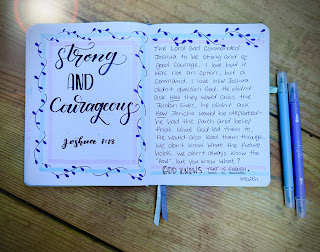 Strong
AND
Courageous
Joshua 1:8
The Lord God commanded
Joshua to be strong and of
good courage. I love how it
was not an option, but a
command. I love how Joshua
didn't question God. He didn't
ask How they would cross the
Jordan River, he didn't ask
How Jericho would be defeated.
he had the faith and belief
that what God led them to,
He would also lead them through.
We don't know what the future
holds. We don't always know the
"how", but you know what?
GOD KNOWS. THAT IS ENOUGH.